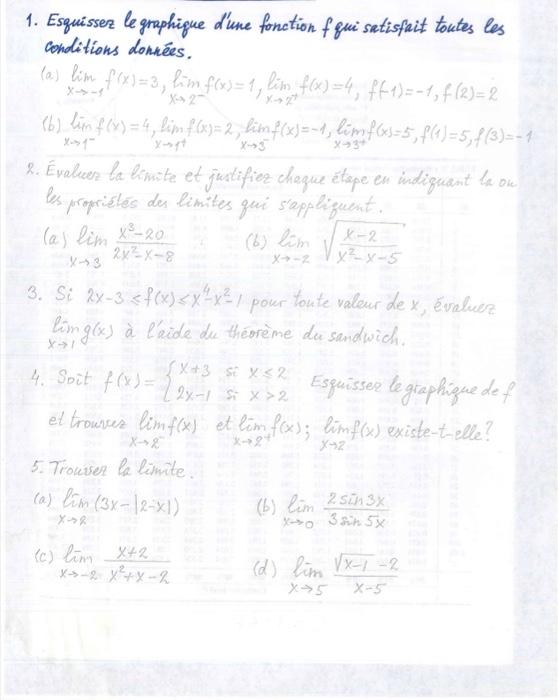 1. Esquissez le graphique d'une fonction f qui satisfait toutes les
conditions données.
(a) lim x→-1 f(x)=3, lim x→2⁻ f(x)=1, lim x→2⁺ f(x)=4, f(-1)=-1, f(2)=2
(b) lim x→1⁻ f(x)=4, lim x→1⁺ f(x)=2, lim x→3⁻ f(x)=-1, lim x→3⁺ f(x)=5, f(1)=5, f(3)=-1
2. Évaluez la limite et justifiez chaque étape en indiquant la ou
les propriétés des limites qui s'appliquent.
(a) lim x→3 (x³-20)/(2x²-x-8) (b) lim x→-2 √((x-2)/(x²-x-5))
3. Si 2x-3 ≤ f(x) ≤ x⁴-x²-1 pour toute valeur de x, évaluez
lim x→1 g(x) à l'aide du théorème du sandwich.
4. Soit f(x) = { x+3 si x ≤ 2
2x-1 si x > 2 Esquissez le graphique de f
et trouvez lim x→2⁻ f(x) et lim x→2⁺ f(x); lim x→2 f(x) existe-t-elle?
5. Trouvez la limite.
(a) lim x→2 (3x-|2-x|) (b) lim x→0 (2 sin 3x)/(3 sin 5x)
(c) lim x→-2 (x+2)/(x²+x-2) (d) lim x→5 (√(x-1) -2)/(x-5)